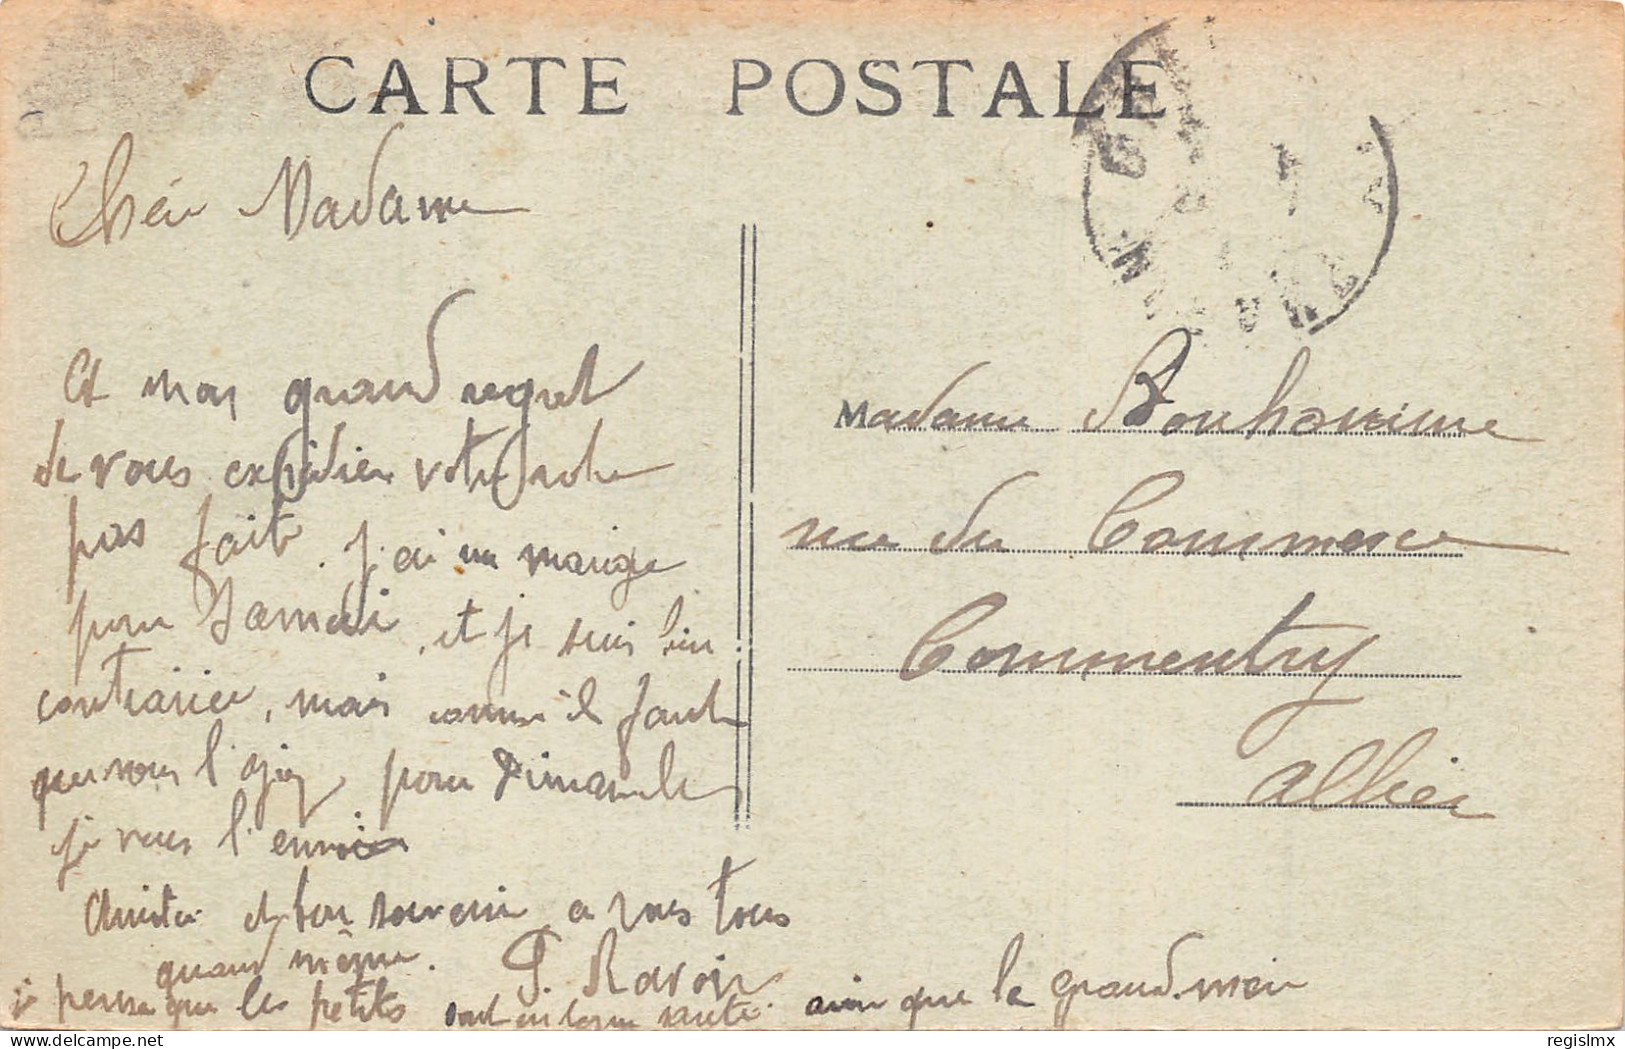 CARTE POSTALE
Chère Madame
A mon grand regret
de vous expédier votre robe
pas faite. j'ai un mariage
pour Samedi, et je suis bien
contrariée, mais comme il faut
que vous l'ayiez pour Dimanche
je vous l'envoie
Amitié et bon souvenir a vous tous
quand même. P. Ravoir
je pense que les petits sont en bonne santé ainsi que la grand.mère
Madame Bonhomme
rue du Commerce
Commentry
Allier
delcampe.net
regislmx